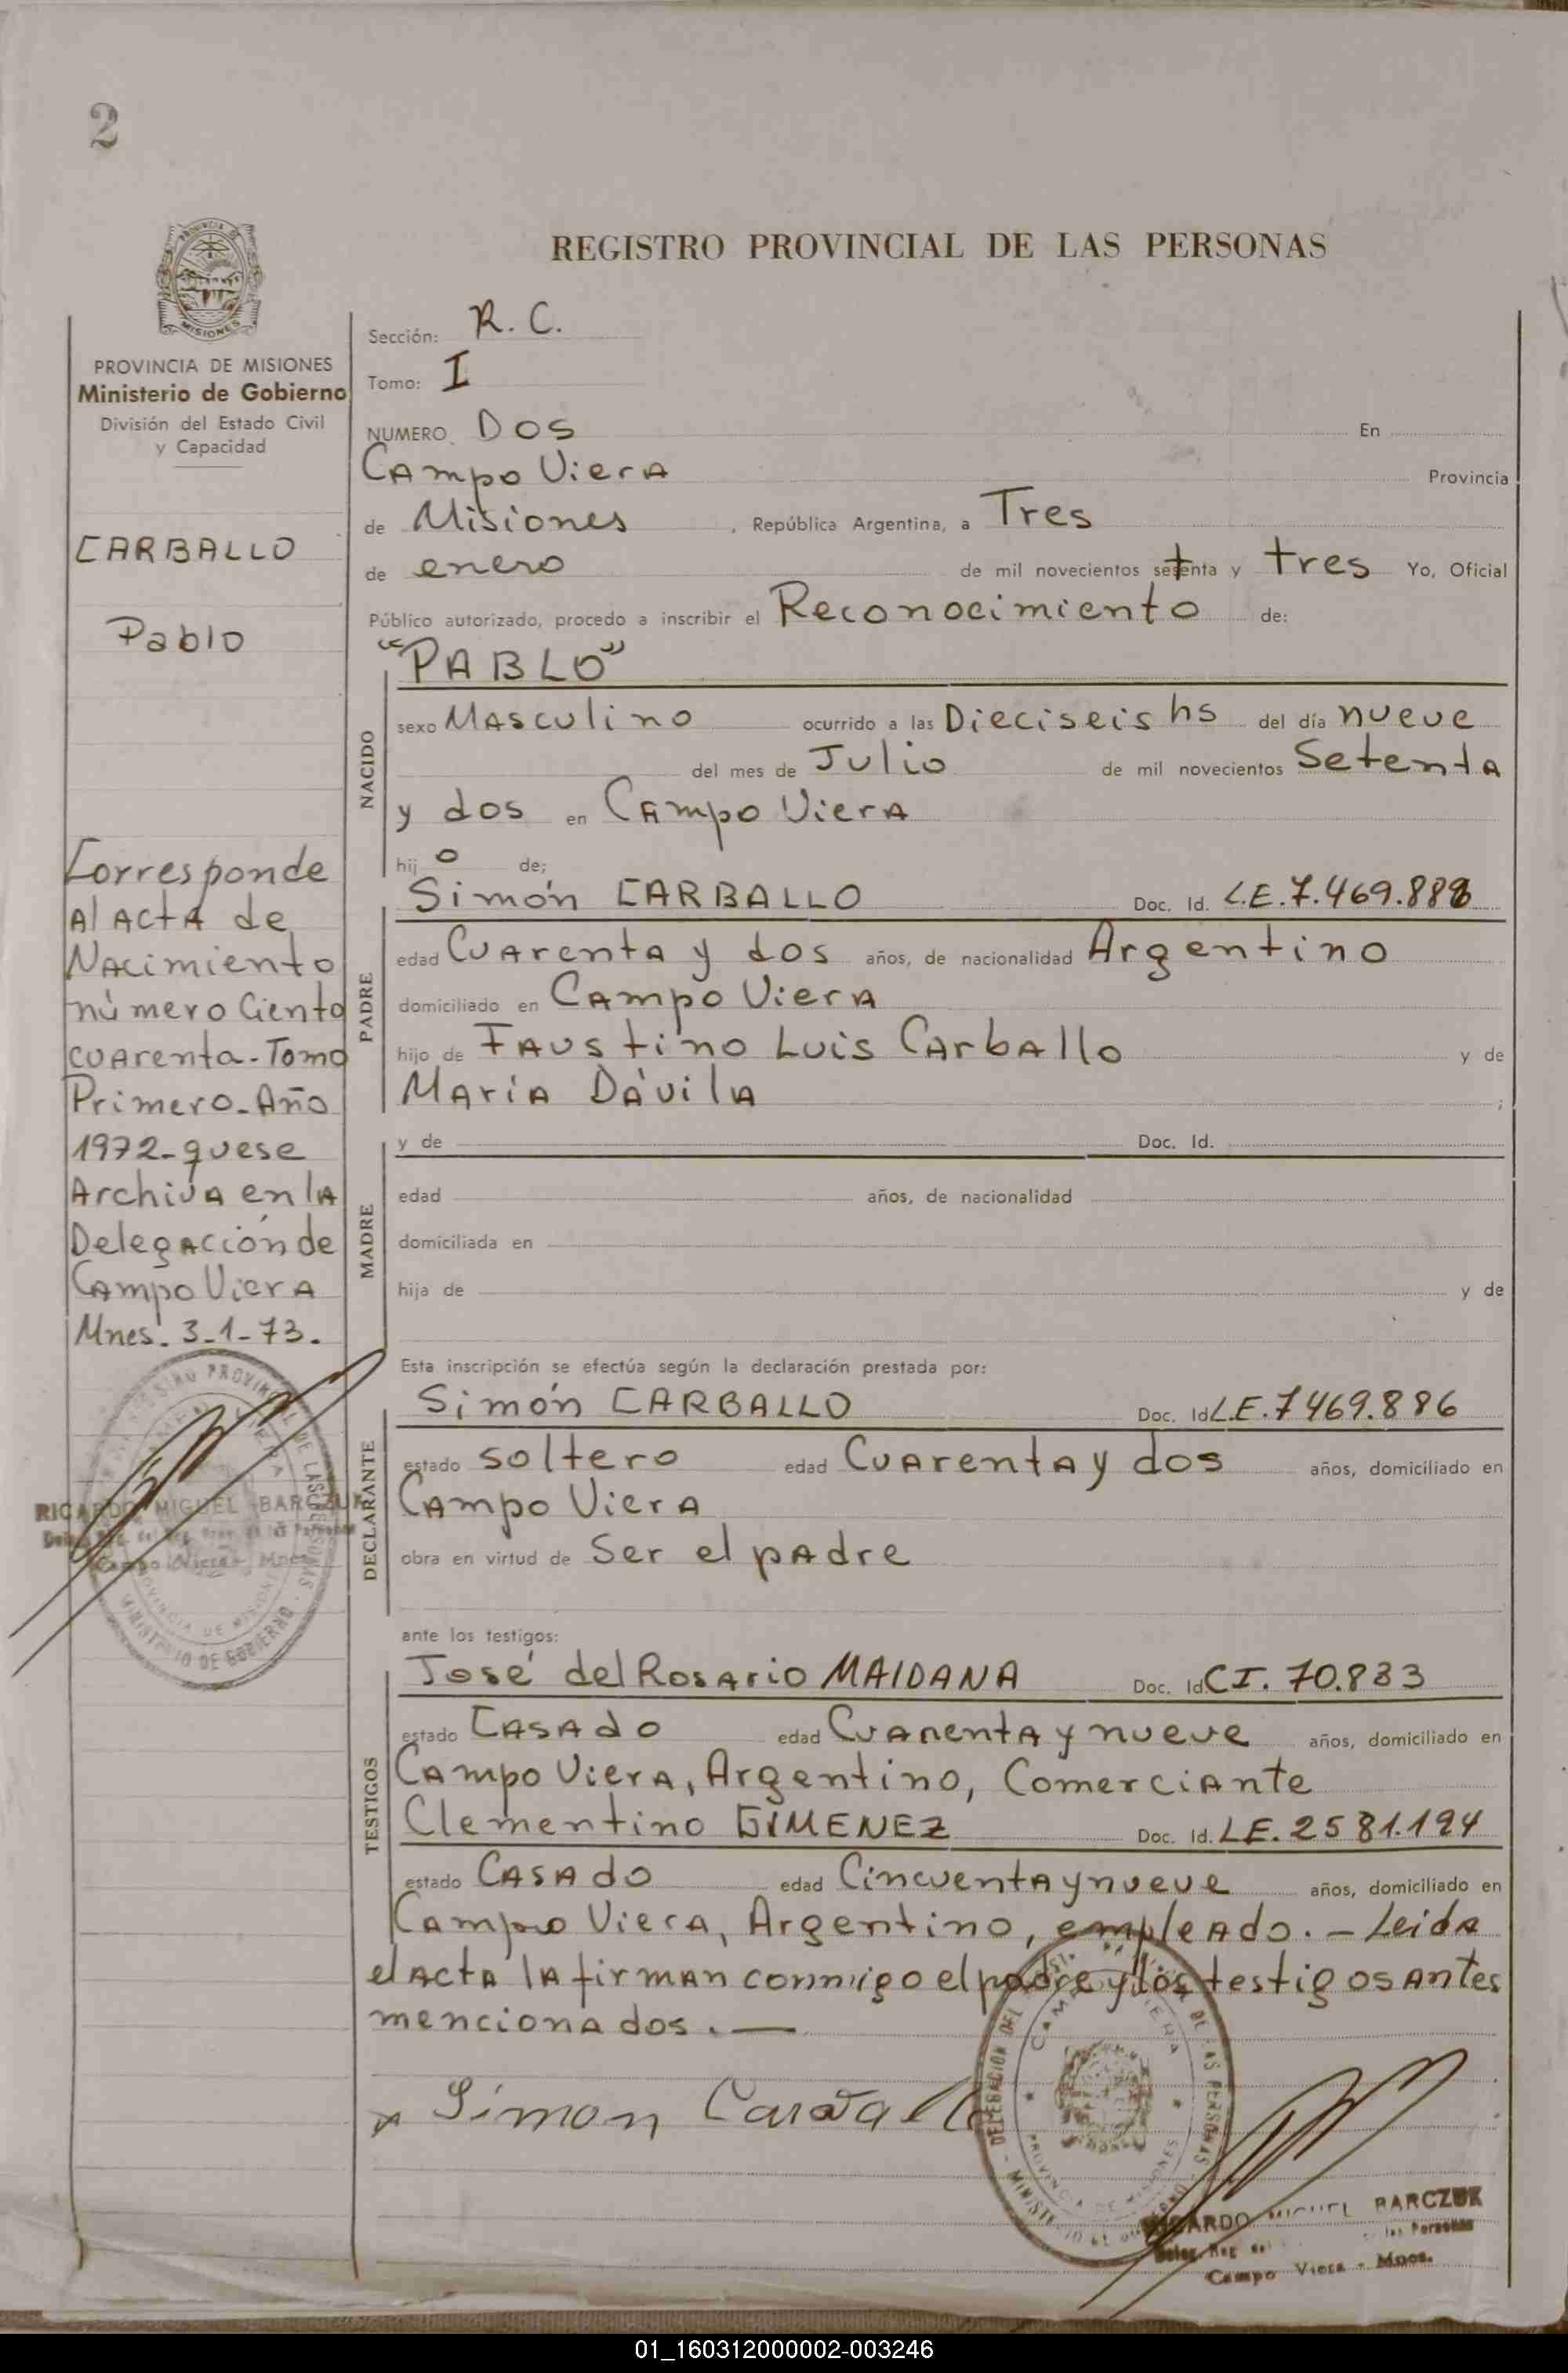 2
REGISTRO PROVINCIAL DE LAS PERSONAS
MISIONES
PROVINCIA DE MISIONES
Ministerio de Gobierno
División del Estado Civil
y Capacidad
CARBALLO
Pablo
Corresponde
Al Acta de
Nacimiento
número Ciento
cuarenta - Tomo
Primero - Año
1972 - que se
Archiva en la
Delegación de
Campo Viera
Mnes. 3-1-73.
RICARDO MIGUEL BARCZUK
Campo Viera - Mnes.
Sección: R. C.
Tomo: I
NUMERO Dos En
Campo Viera Provincia
de Misiones, República Argentina, a Tres
de enero de mil novecientos setenta y tres Yo, Oficial
Público autorizado, procedo a inscribir el Reconocimiento de:
NACIDO
"PABLO"
sexo Masculino ocurrido a las Dieciseis hs del día nueve
del mes de Julio de mil novecientos Setenta
y dos en Campo Viera
hijo de;
PADRE
Simón CARBALLO Doc. Id. L.E. 7.469.886
edad Cuarenta y dos años, de nacionalidad Argentino
domiciliado en Campo Viera
hijo de Faustino Luis Carballo y de
María Dávila ;
MADRE
y de Doc. Id.
edad años, de nacionalidad
domiciliada en
hija de y de
Esta inscripción se efectúa según la declaración prestada por:
DECLARANTE
Simón CARBALLO Doc. Id L.E. 7469.886
estado soltero edad Cuarenta y dos años, domiciliado en
Campo Viera
obra en virtud de Ser el padre
ante los testigos:
TESTIGOS
José del Rosario MAIDANA Doc. Id CI. 70.833
estado Casado edad Cuarenta y nueve años, domiciliado en
Campo Viera, Argentino, Comerciante
Clementino GIMENEZ Doc. Id. LE. 2581.194
estado Casado edad Cincuenta y nueve años, domiciliado en
Campo Viera, Argentino, empleado. - Leida
el acta la firman conmigo el padre y los testigos antes
mencionados. —
x Simon Carballo
RICARDO MIGUEL BARCZUK
Campo Viera - Mnes.
01_160312000002-003246